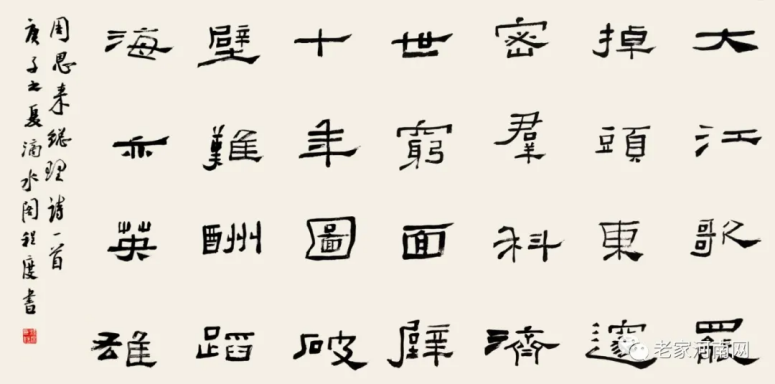 大江歌罷
掉頭東邃
密羣科濟
世窮面壁
十年圖破
壁難酬蹈
海亦英雄
周恩来總理詩一首
庚子之夏滴水周程度書
老家河南网